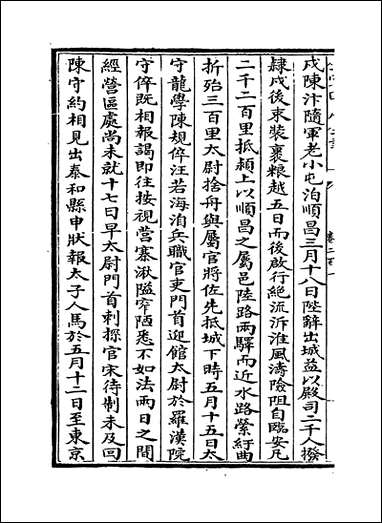 戍陳汴隨軍老小屯泊順昌三月十八日陛辭出城益以殿司二千人撥
隸戍後束裝裹粮越五日而後啟行絶流泝淮風濤險阻自臨安凡
二千二百里抵頴上以順昌之屬邑陸路兩驛而近水路縈紆曲
折殆三百里太尉捨舟與屬官將佐先抵城下時五月十五日太
守龍學陳規倅汪若海洎兵職官吏門首迎館太尉於羅漢院
守倅既相報謁即往按視營寨湫隘窄陋悉不如法兩日之間
經營區處尚未就十七日早太尉門首刺探官宋待制未及回
陳守約相見出泰和縣申狀報太子人馬於五月十二日至東京